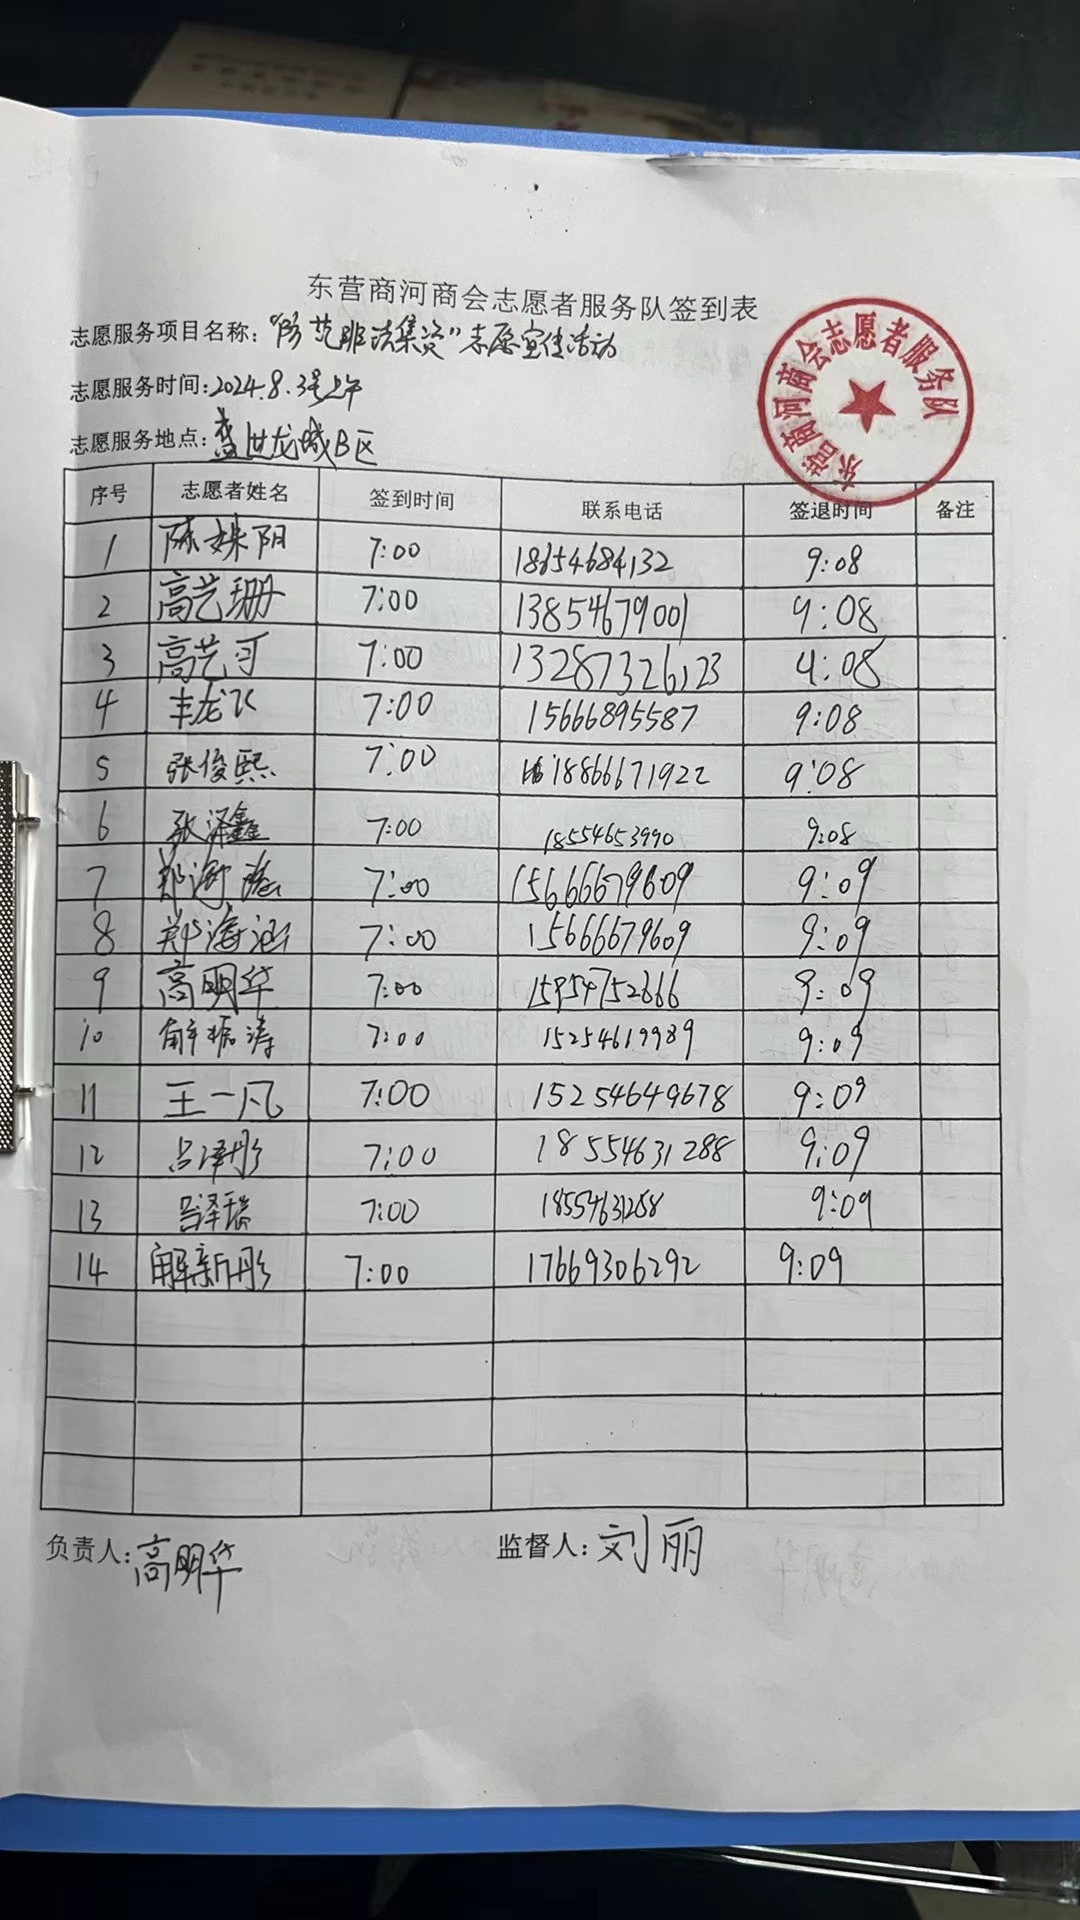 东营商河商会志愿者服务队签到表
志愿服务项目名称："防范非法集资"志愿宣传活动
志愿服务时间：2024.8.3号上午
志愿服务地点：盛世龙城B区
东营商河商会志愿者服务队
序号 志愿者姓名 签到时间 联系电话 签退时间 备注
1 陈姝阳 7:00 18654684132 9:08
2 高艺珊 7:00 13854679001 9:08
3 高艺可 7:00 13287326123 9:08
4 丰龙飞 7:00 15666895587 9:08
5 张俊熙 7:00 18866671922 9:08
6 张泽鑫 7:00 18554653990 9:08
7 郑海 7:00 15666679609 9:09
8 郑海涵 7:00 15666679609 9:09
9 高明华 7:00 15954752666 9:09
10 解振涛 7:00 15254619989 9:09
11 王一凡 7:00 15254649678 9:09
12 吕泽彤 7:00 18554631288 9:09
13 吕泽瑞 7:00 18554631288 9:09
14 解新彤 7:00 17669306292 9:09
负责人：高明华 监督人：刘丽